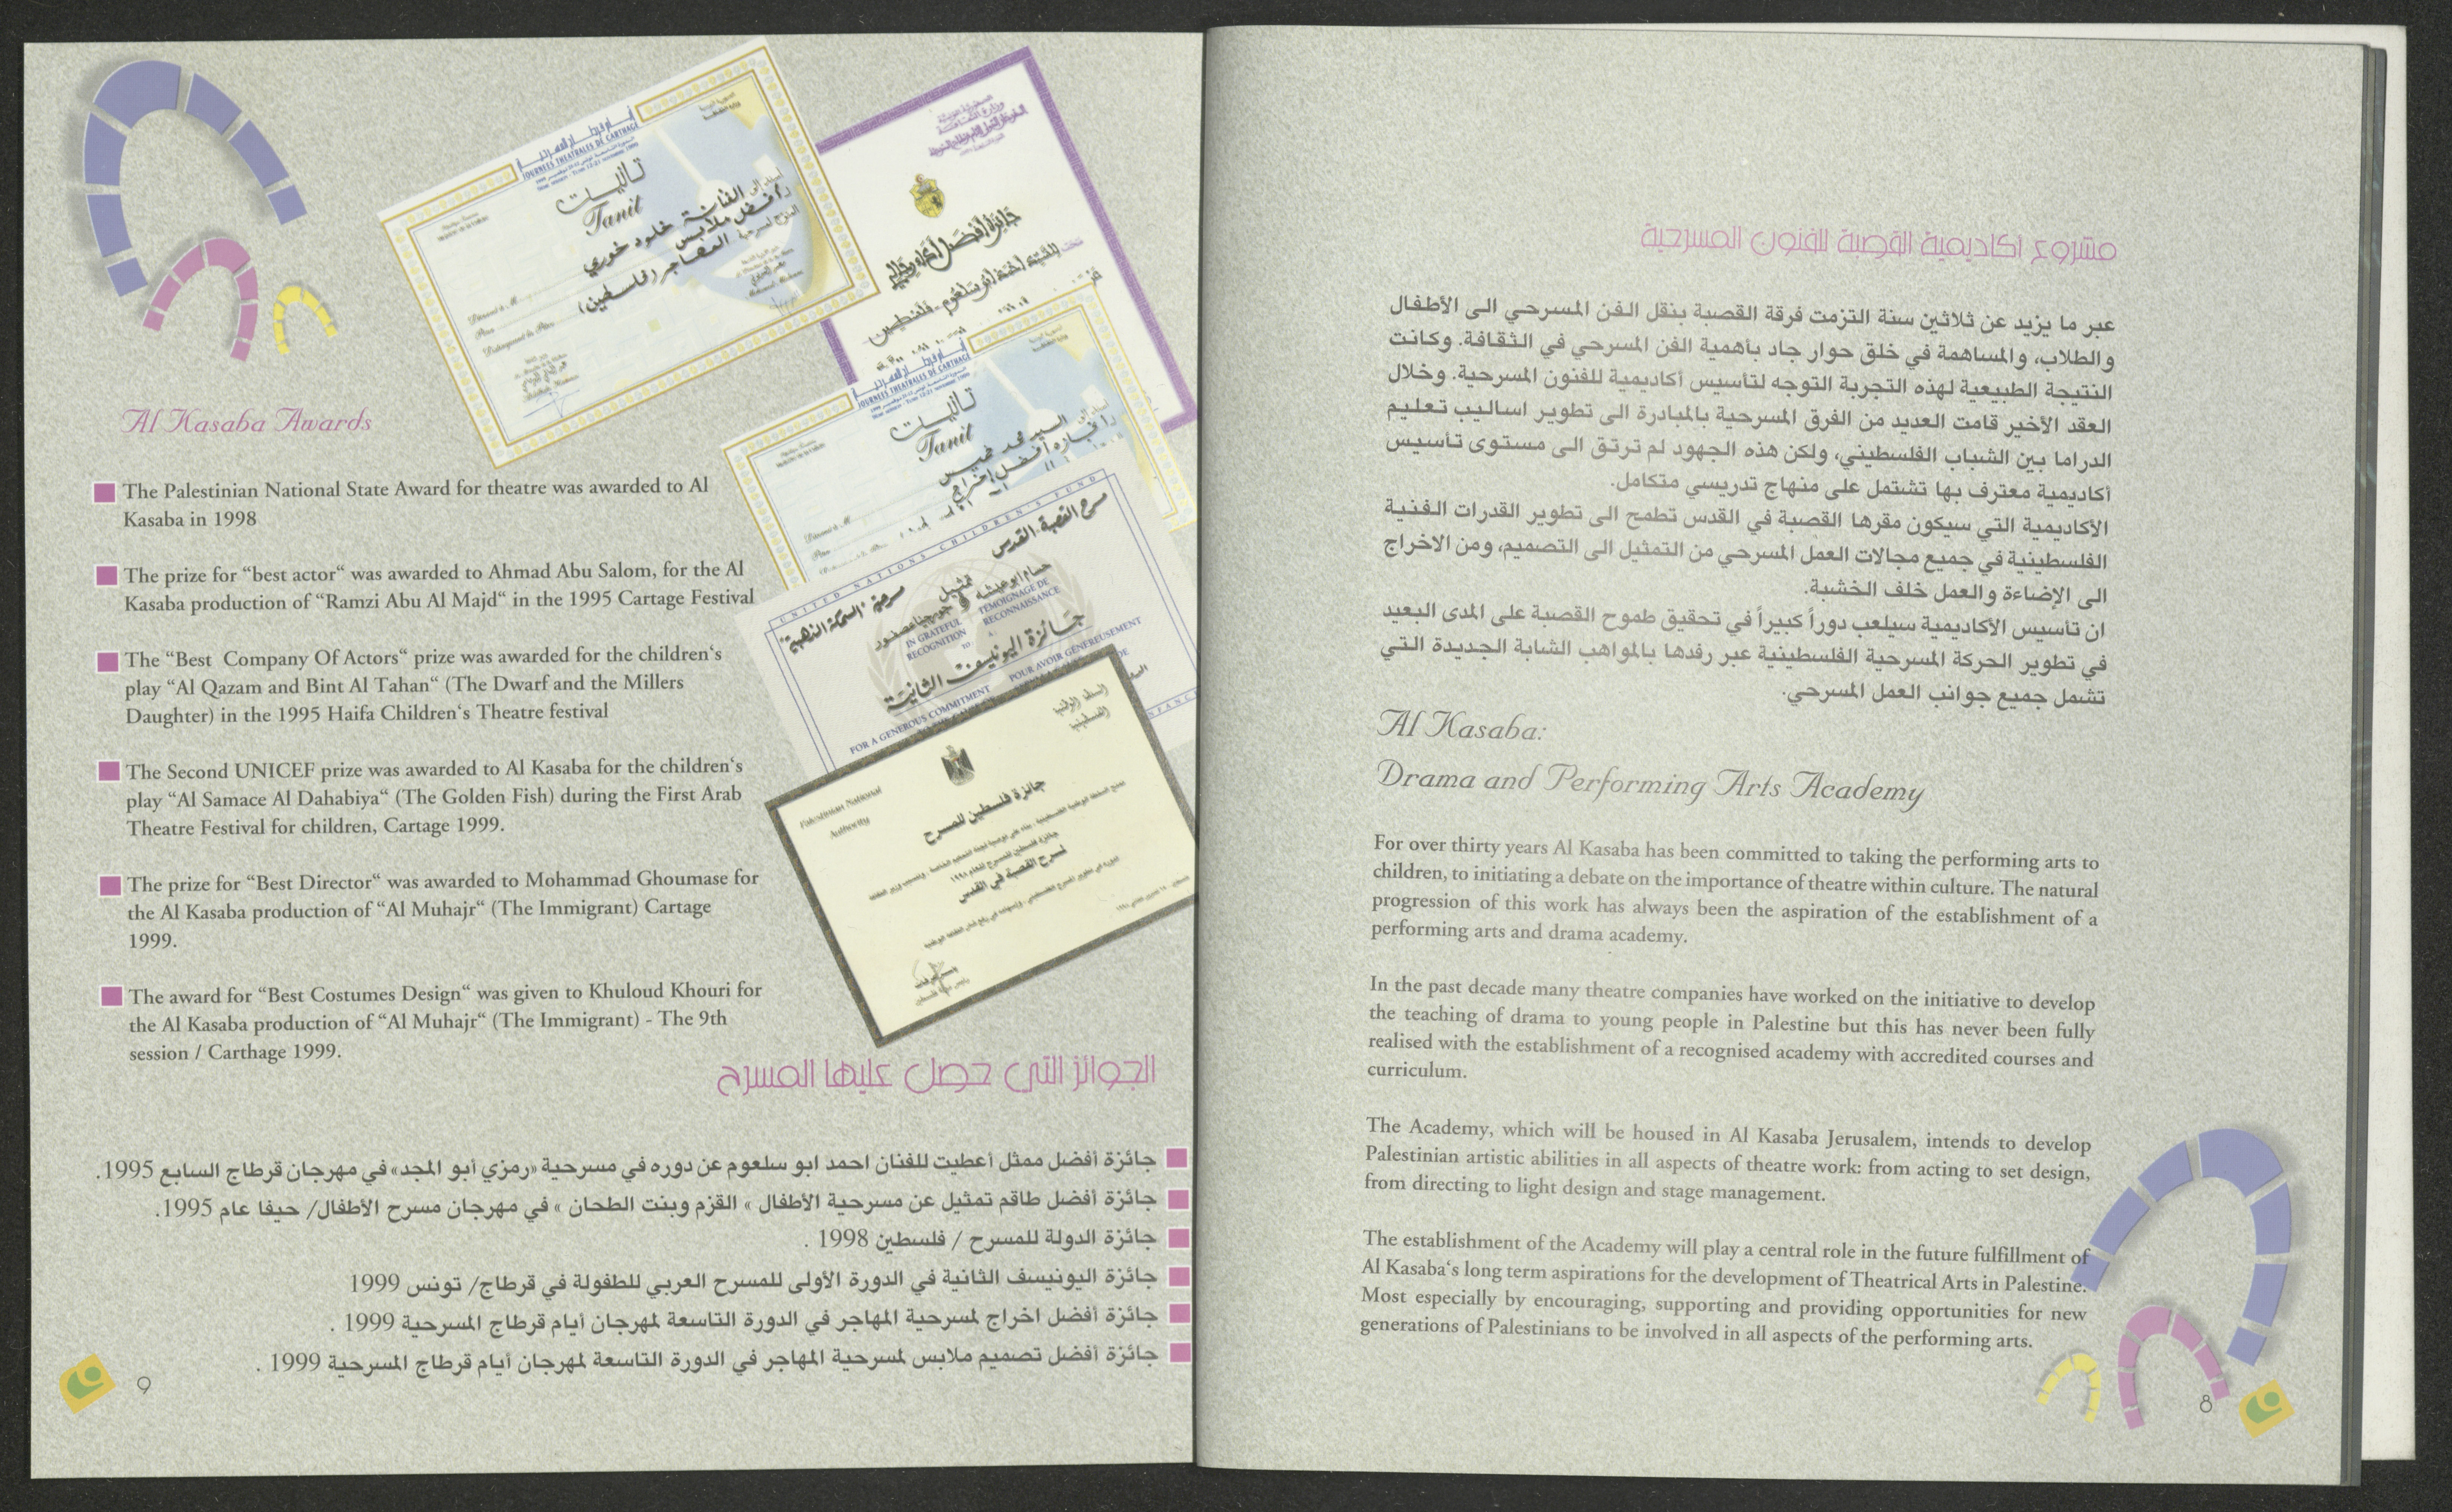 مشروع اكاديمية القصبة للفنون المسرحية
عبر ما يزيد عن ثلاثين سنة التزمت فرقة القصبة بنقل الفن المسرحي الى الأطفال
والطلاب، والمساهمة في خلق حوار جاد بأهمية الفن المسرحي في الثقافة. وكانت
النتيجة الطبيعية لهذه التجربة التوجه لتأسيس أكاديمية للفنون المسرحية. وخلال
العقد الأخير قامت العديد من الفرق المسرحية بالمبادرة الى تطوير اساليب تعليم
الدراما بين الشباب الفلسطيني، ولكن هذه الجهود لم ترتق الى مستوى تأسيس
أكاديمية معترف بها تشتمل على منهاج تدريسي متكامل.
الأكاديمية التي سيكون مقرها القصبة في القدس تطمح الى تطوير القدرات الفنية
الفلسطينية في جميع مجالات العمل المسرحي من التمثيل الى التصميم، ومن الاخراج
الى الإضاءة والعمل خلف الخشبة.
ان تأسيس الأكاديمية سيلعب دوراً كبيراً في تحقيق طموح القصبة على المدى البعيد
في تطوير الحركة المسرحية الفلسطينية عبر رفدها بالمواهب الشابة الجديدة التي
تشمل جميع جوانب العمل المسرحي.
Al Kasaba:
Drama and Performing Arts Academy
For over thirty years Al Kasaba has been committed to taking the performing arts to
children, to initiating a debate on the importance of theatre within culture. The natural
progression of this work has always been the aspiration of the establishment of a
performing arts and drama academy.
In the past decade many theatre companies have worked on the initiative to develop
the teaching of drama to young people in Palestine but this has never been fully
realised with the establishment of a recognised academy with accredited courses and
curriculum.
The Academy, which will be housed in Al Kasaba Jerusalem, intends to develop
Palestinian artistic abilities in all aspects of theatre work: from acting to set design,
from directing to light design and stage management.
The establishment of the Academy will play a central role in the future fulfillment of
Al Kasaba‘s long term aspirations for the development of Theatrical Arts in Palestine.
Most especially by encouraging, supporting and providing opportunities for new
generations of Palestinians to be involved in all aspects of the performing arts.
8
JOURNEES THEATRALES DE CARTHAGE
تانيت
Tanit
الفنانة خلود خوري
أفضل ملابس
المهاجر (فلسطين)
جائزة أفضل أداء رجالي
JOURNEES THEATRALES DE CARTHAGE
تانيت
Tanit
السيد محمد خميس
أفضل إخراج
UNITED NATIONS CHILDREN'S FUND
مسرح القصبة - القدس
مسرحية "السمكة الذهبية"
تمثيل
IN GRATEFUL
RECOGNITION
TO
TÉMOIGNAGE DE
RECONNAISSANCE
À
جائزة اليونيسف الثانية
FOR A GENEROUS COMMITMENT
POUR AVOIR GÉNÉREUSEMENT
Palestinian National
Authority
السلطة الوطنية
الفلسطينية
جائزة فلسطين للمسرح
لمسرح القصبة في القدس
Al Kasaba Awards
The Palestinian National State Award for theatre was awarded to Al
Kasaba in 1998
The prize for “best actor“ was awarded to Ahmad Abu Salom, for the Al
Kasaba production of “Ramzi Abu Al Majd“ in the 1995 Cartage Festival
The “Best Company Of Actors“ prize was awarded for the children‘s
play “Al Qazam and Bint Al Tahan“ (The Dwarf and the Millers
Daughter) in the 1995 Haifa Children‘s Theatre festival
The Second UNICEF prize was awarded to Al Kasaba for the children‘s
play “Al Samace Al Dahabiya“ (The Golden Fish) during the First Arab
Theatre Festival for children, Cartage 1999.
The prize for “Best Director“ was awarded to Mohammad Ghoumase for
the Al Kasaba production of “Al Muhajr“ (The Immigrant) Cartage
1999.
The award for “Best Costumes Design“ was given to Khuloud Khouri for
the Al Kasaba production of “Al Muhajr“ (The Immigrant) - The 9th
session / Carthage 1999.
الجوائز التي حصل عليها المسرح
جائزة أفضل ممثل أعطيت للفنان احمد ابو سلعوم عن دوره في مسرحية «رمزي أبو المجد» في مهرجان قرطاج السابع 1995.
جائزة أفضل طاقم تمثيل عن مسرحية الأطفال » القزم وبنت الطحان » في مهرجان مسرح الأطفال/ حيفا عام 1995.
جائزة الدولة للمسرح / فلسطين 1998 .
جائزة اليونيسف الثانية في الدورة الأولى للمسرح العربي للطفولة في قرطاج/ تونس 1999
جائزة أفضل اخراج لمسرحية المهاجر في الدورة التاسعة لمهرجان أيام قرطاج المسرحية 1999 .
جائزة أفضل تصميم ملابس لمسرحية المهاجر في الدورة التاسعة لمهرجان أيام قرطاج المسرحية 1999 .
9